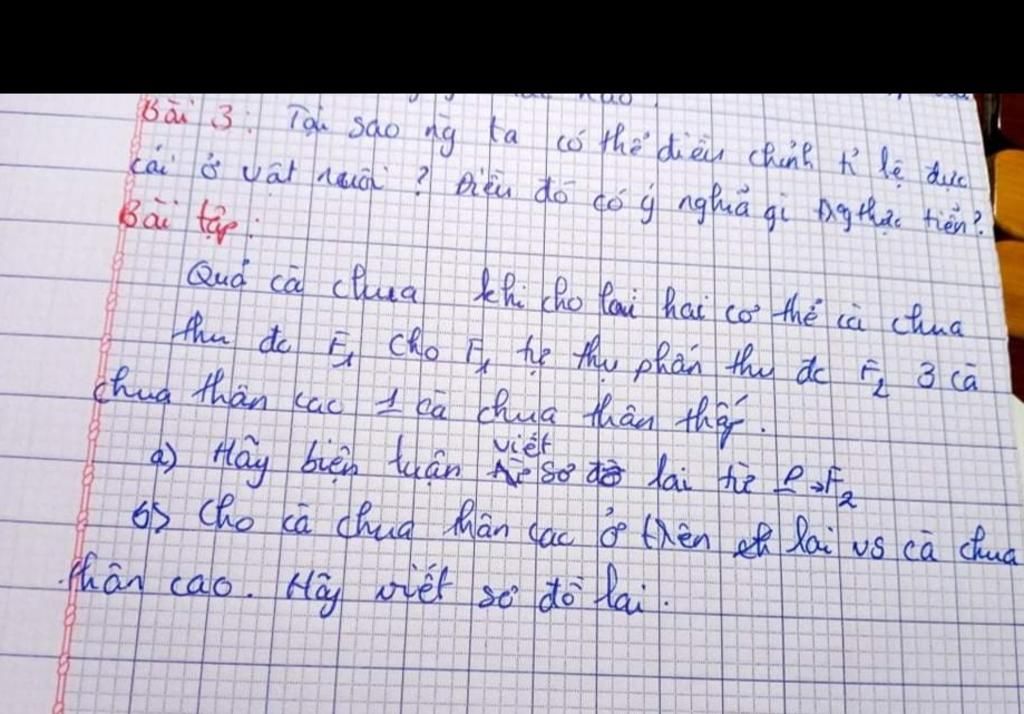 Bài 3: Tại sao ng ta có thể điều chỉnh tỉ lệ đực
cái ở vật nuôi? Điều đó có ý nghĩa gì trg thực tiễn?
Bài tập:
Quả cà chua khi cho lai hai cơ thể cà chua
thu đc F1 cho F1 tự thụ phấn thu đc F2 3 cà
chua thân cao 1 cà chua thân thấp.
a) Hãy biện luận viết sơ đồ lai từ P→F2
b) Cho cà chua thân cao ở trên lai vs cà chua
thân cao. Hãy viết sơ đồ lai.